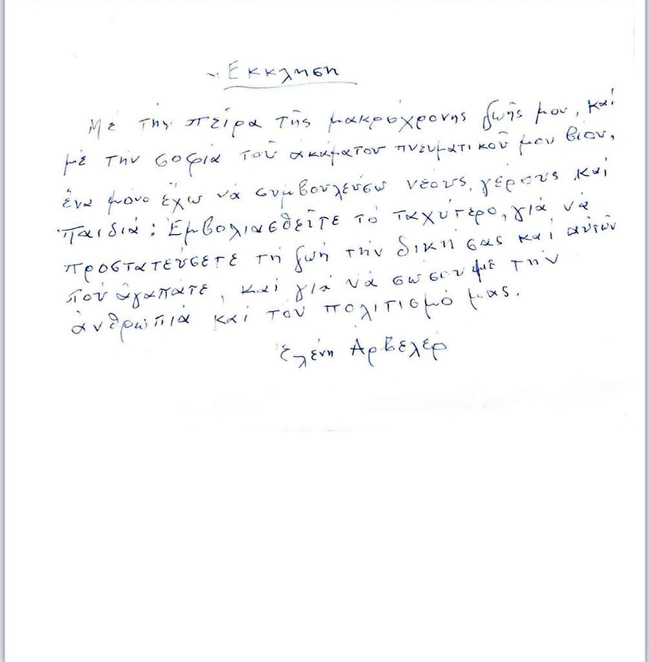 Εκκληση
Μέ τής πείρα τῆς μακρόχρονης ζωῆς μου, καί
μέ τήν σοφία τοῦ ακάματου πνευματικοῦ μου βίου,
ἕνα μόνο ἔχω νά συμβουλεύσω νέους, γέρους καί
παιδιά: Ἐμβολιασθεῖτε τό ταχύτερο, γιά νά
προστατεύσετε τή ζωή τήν δική σας καί αὐτῶν
πού ἀγαπᾶτε, καί γιά νά σώσουμε τήν
ἀνθρωπιά καί τόν πολιτισμό μας.
Ἑλένη Ἀρβελέρ